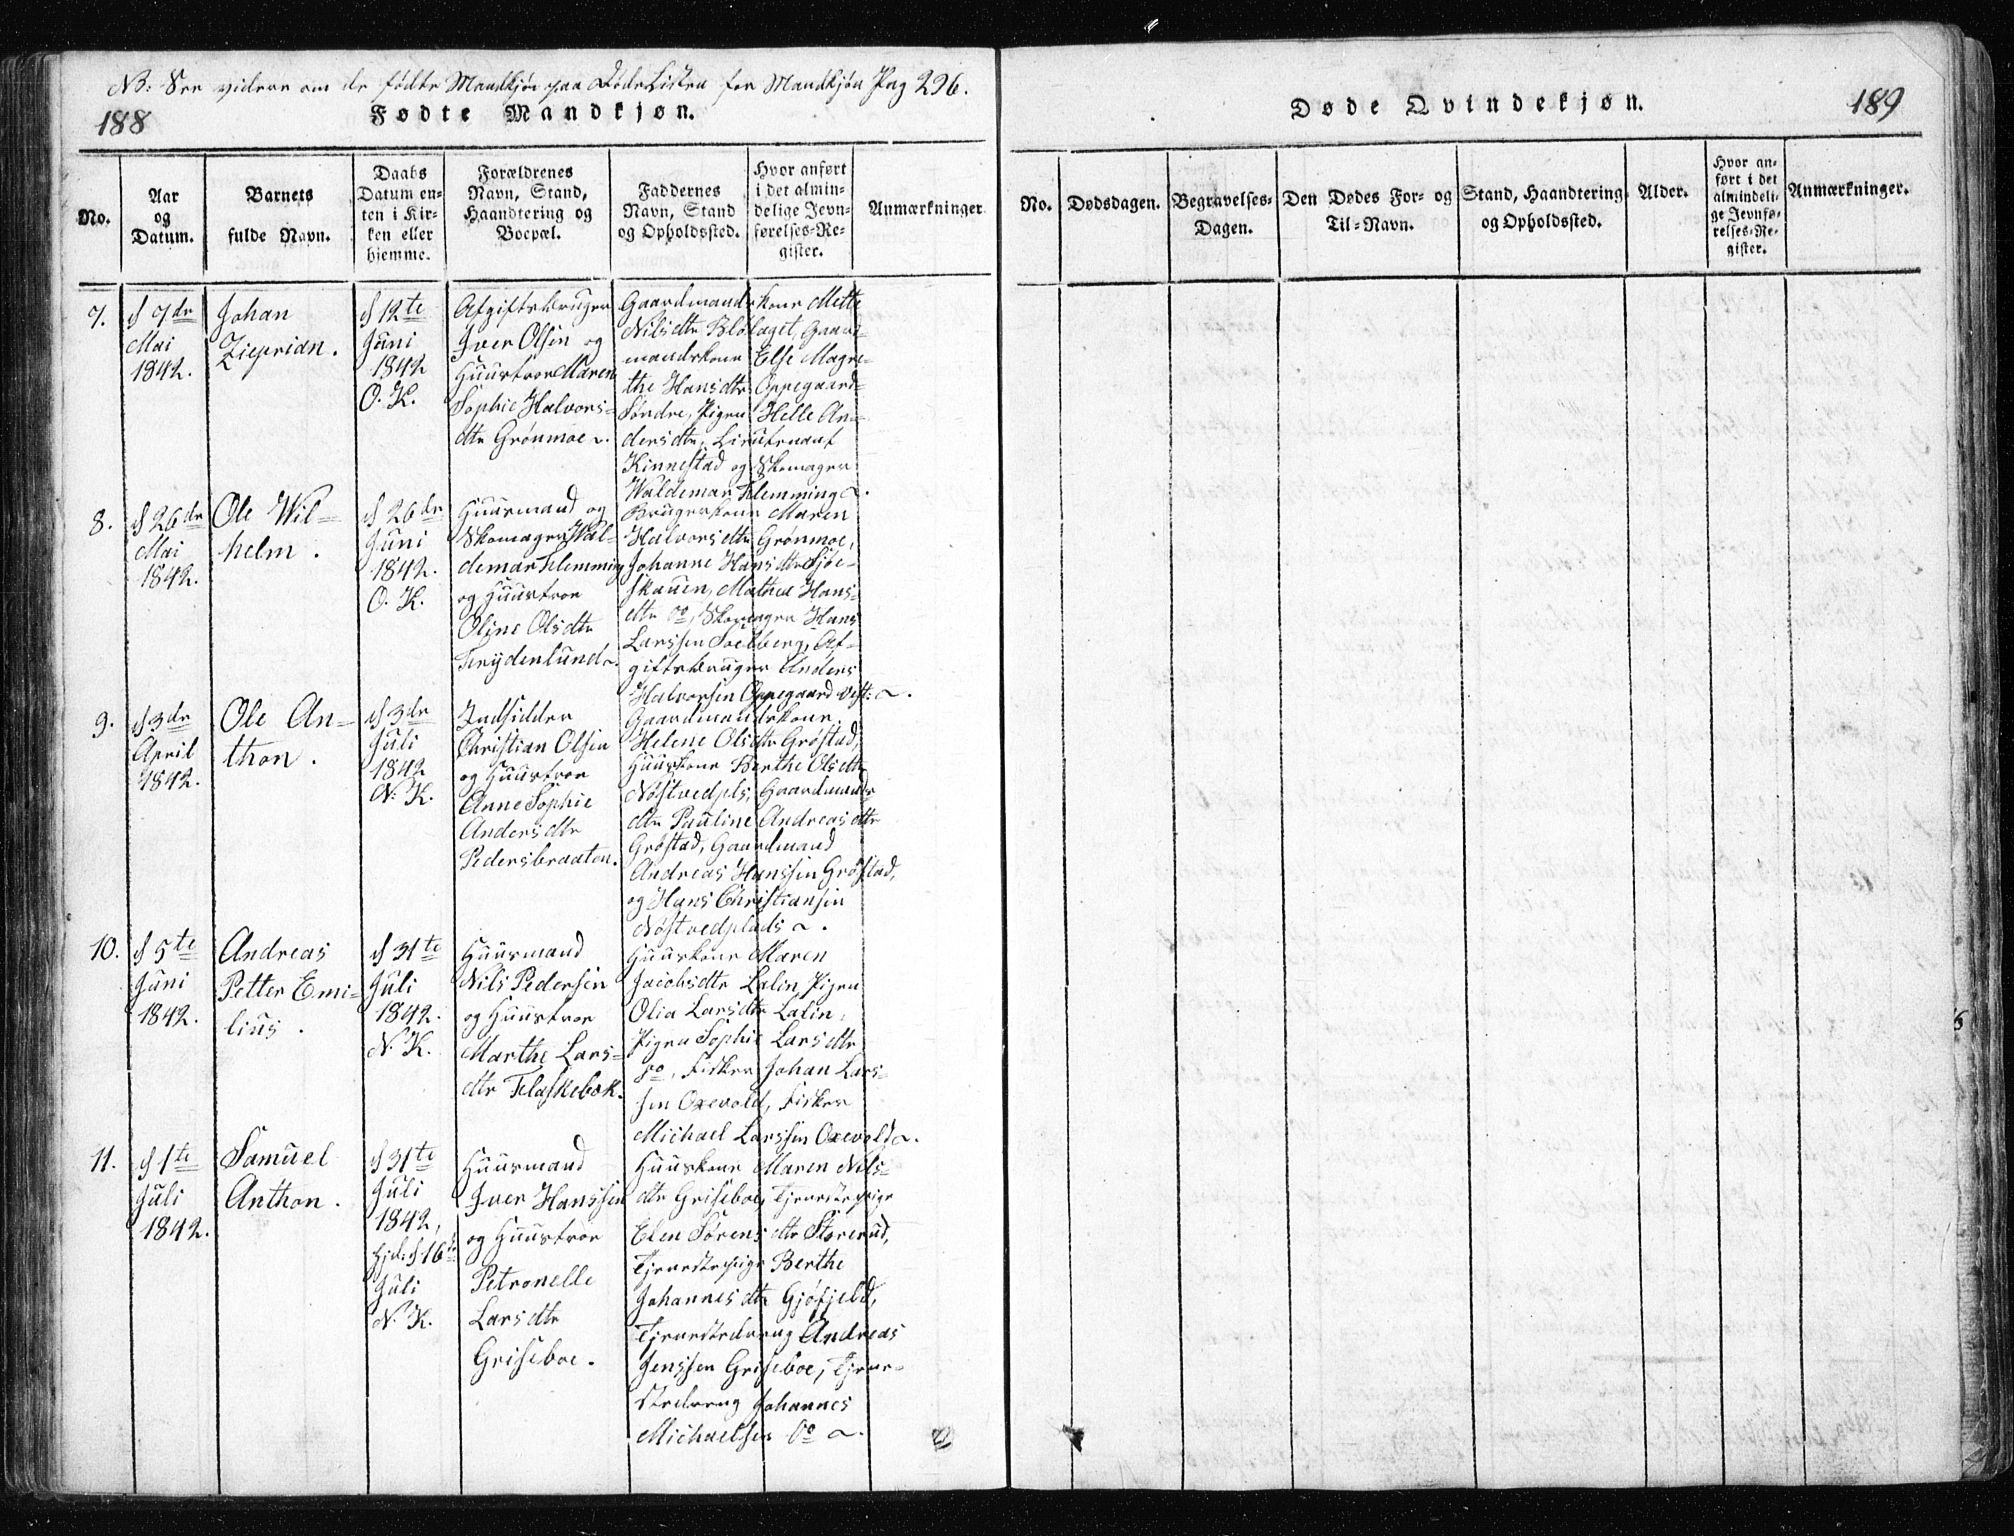 NB: See videre om de fødte Mandkjøn paa FødeListen for Mandkjøn Pag 296.
188
Fødte Mandkjøn.
No.
Aar
og
Datum.
Barnets
fulde Navn.
Daabs
Datum en-
ten i Kir-
ken eller
hjemme.
Forældrenes
Navn, Stand,
Haandtering og
Boepæl.
Faddernes
Navn, Stand
og Opholdssted.
Hvor anført
i det almin-
delige Jevn-
førelses-Re-
gister.
Anmærkninger.
7.
d 7de
Mai
1842.
Johan
Zieprian.
d 12te
Juni
1842
O. K.
Afgiftsbruger
Iver Olsen og
Huustroe Maren
Sophie Halvors-
dtr Grønmoe
Gaardmandskone Mette
Nilsdtr Blølaget, Gaard-
mandskone Else Magre-
the Hansdtr Oppegaard
Søndre, Pigen Helle An-
dersdtr, Lieutenant
Kinnestad og Skomager
Waldemar Flemming
8.
d 26de
Mai
1842.
Ole Wil-
helm.
d 26de
Juni
1842.
O. K.
Huusmand og
Skomager Wal-
demar Flemming
og Huustroe
Oline Olsdtr
Frydenlund
Brugerkone Maren
Halvorsdtr Grønmoe,
Johanne Hansdtr Sjøe-
skauen, Mathea Hans-
dtr do, Skomager Hans
Larssen Soelberg, Af-
giftsbruger Anders
Halvorsen Oppegaard vest:
9.
d 3de
April
1842.
Ole An-
thon.
d 3de
Juli
1842
N. K.
Indsidder
Christian Olsen
og Huustroe
Anne Sophie
Andersdtr
Pedersbraaten.
Gaardmandskone
Helene Olsdtr Grøstad,
Huuskone Berthe Olsdtr
Nøstvedpls, Gaardmands
dtr Pauline Andreasdtr
Grøstad, Gaardmand
Andreas Hanssen Grøstad,
og Hans Christiansen
Nøstvedplads
10.
d 5te
Juni
1842.
Andreas
Petter Emi-
lius.
d 31te
Juli
1842.
N. K.
Huusmand
Nils Pedersen
og Huustroe
Marthe Lars-
dtr Flaskebæk.
Huuskone Maren
Jacobsdtr Lalin, Pigen
Olia Larsdtr Lalin,
Pigen Sophie Larsdtr
do, Fisker Johan Lars-
sen Oxevold, Fisker
Michael Larssen Oxevold
11.
d 1te
Juli
1842.
Samuel
Anthon.
d 31te
Juli
1842,
hjd: d 16de
Juli
N. K.
Huusmand
Iver Hanssen
og Huustroe
Petronelle
Larsdtr
Griseboe.
Huuskone Maren Nils-
dtr Griseboe, Tjenestepige
Elen Sørensdtr Storerud,
Tjenestepige Berthe
Johannesdtr Gjøfjeld,
Tjenestedreng Andreas
Jenssen Griseboe, Tjene-
stedreng Johannes
Michaelsen do
Døde Qvindekjøn.
189
No.
Dødsdagen.
Begravelses-
Dagen.
Den Dødes For- og
Til-Navn.
Stand, Haandtering
og Opholdssted.
Alder.
Hvor an-
ført i det
almindeli-
ge Jevnfø-
relses-Re-
gister.
Anmærkninger.